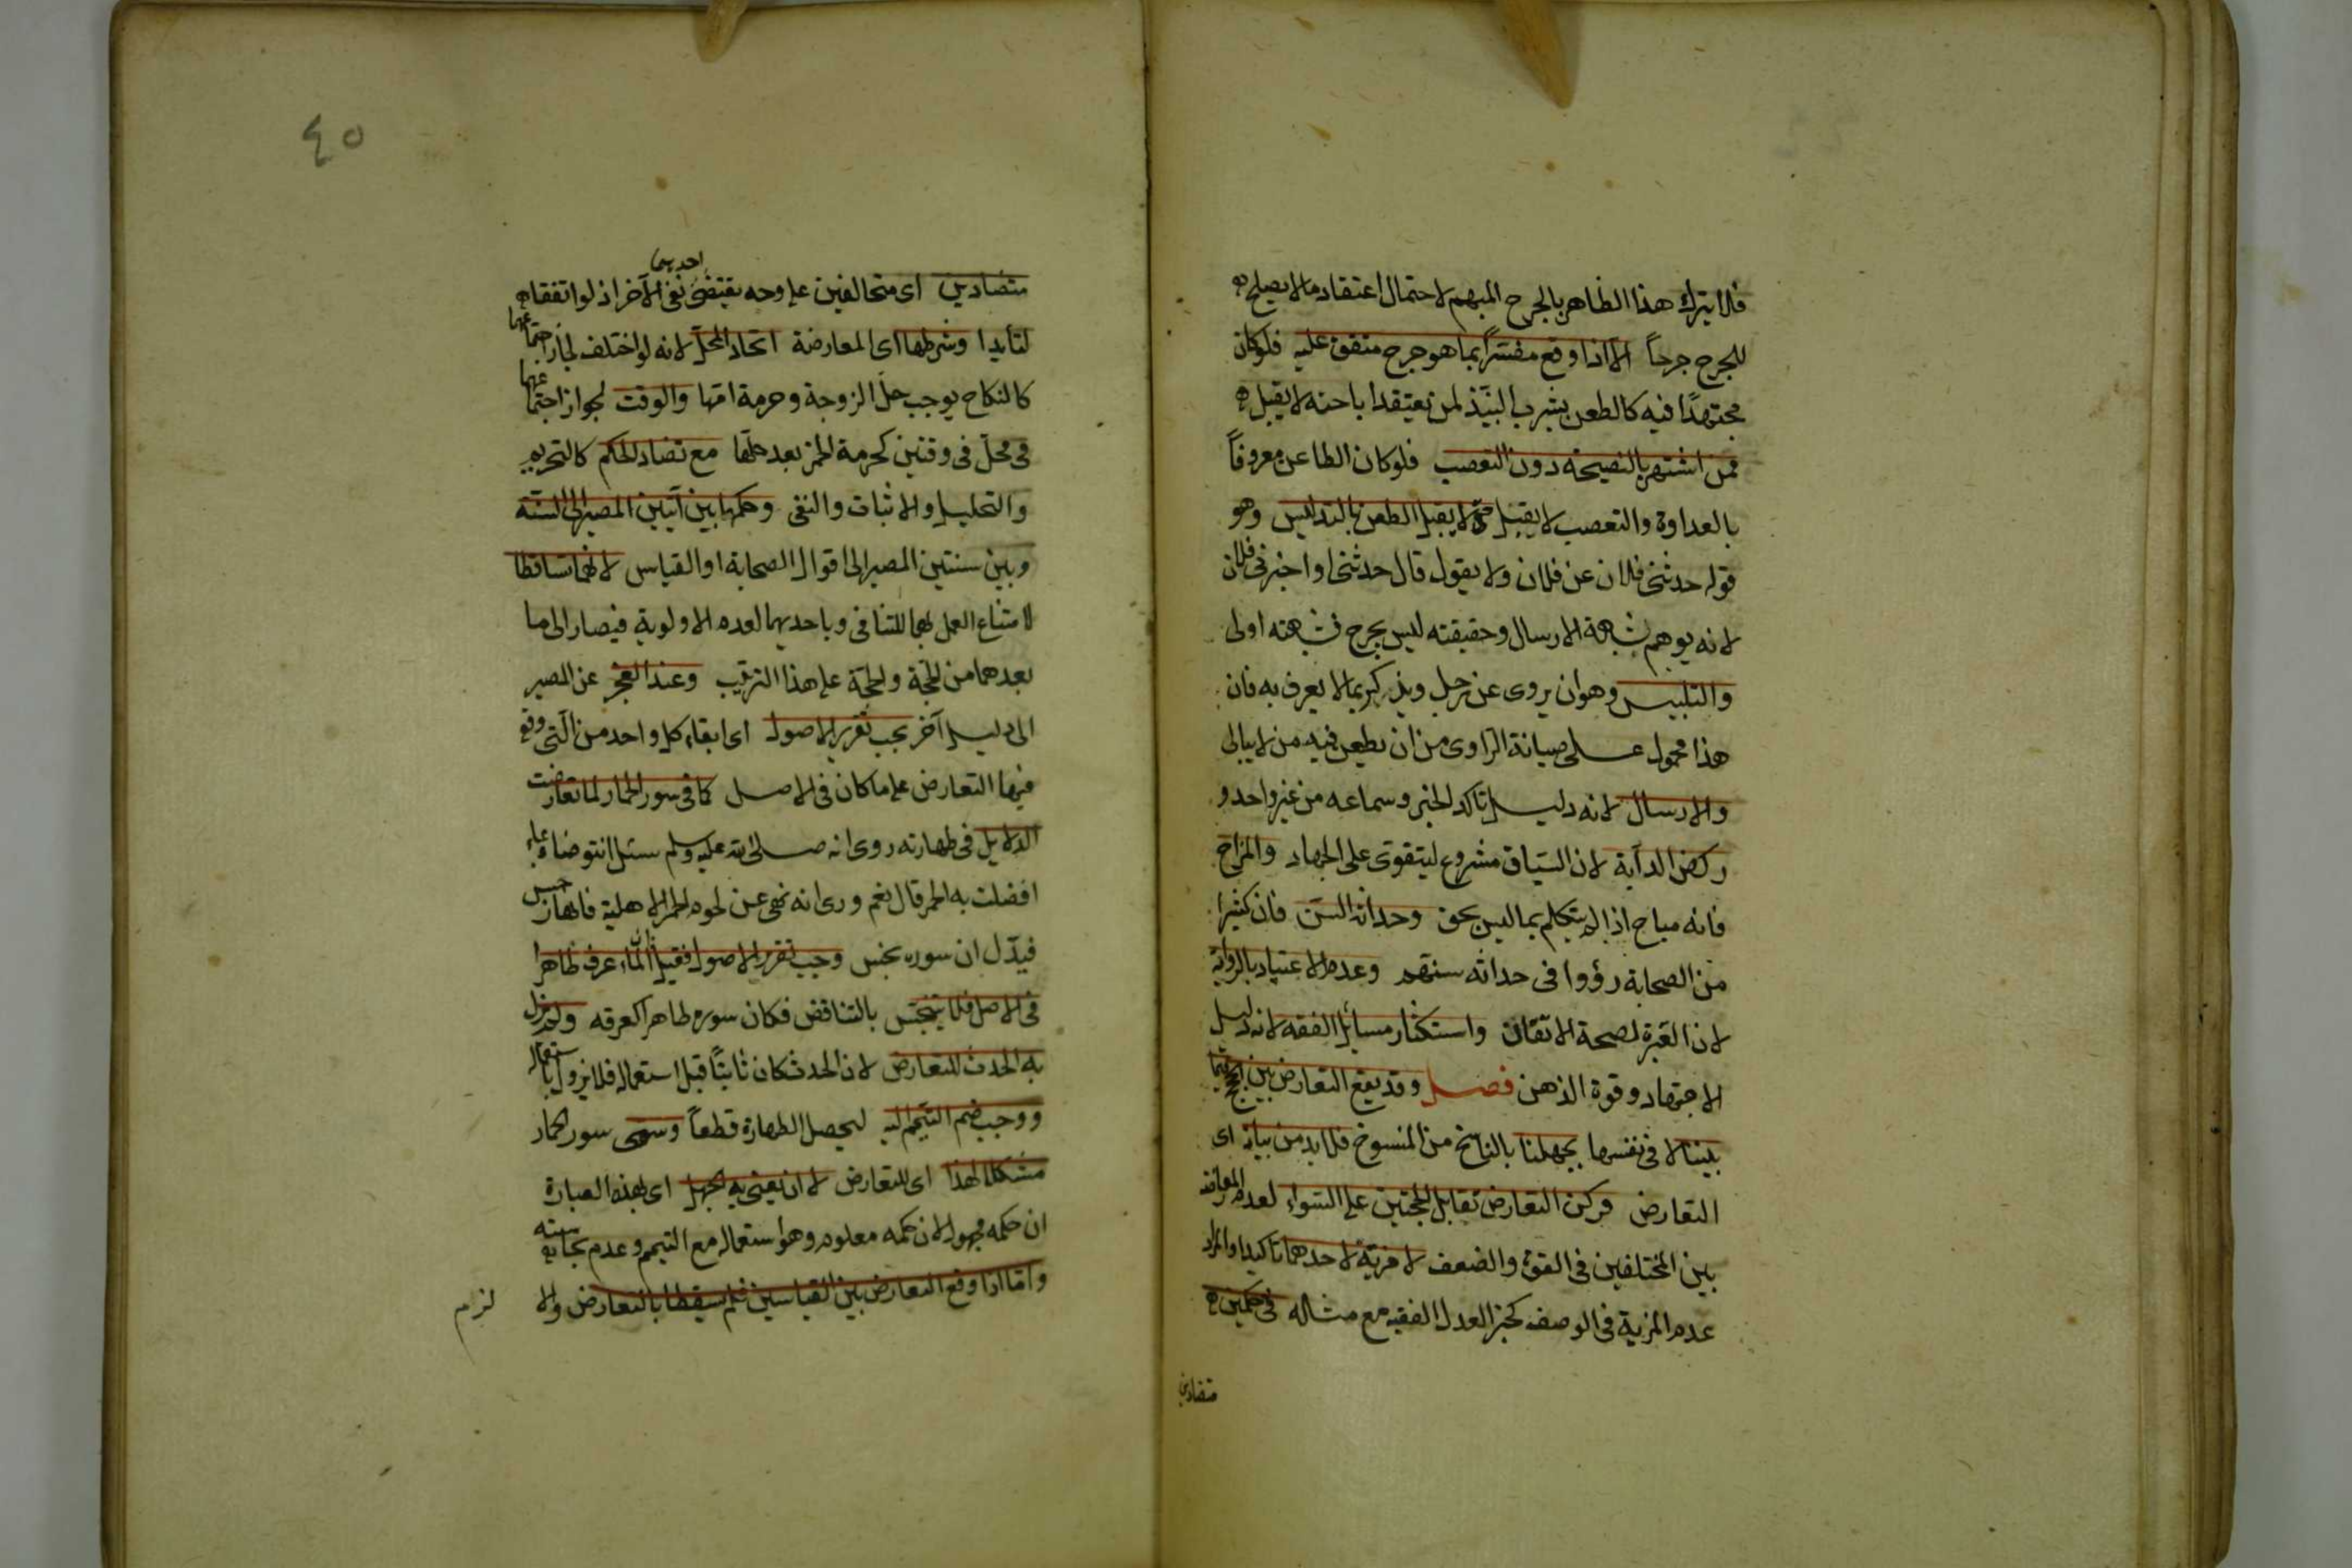 فلا يترك هذا الظاهر بالجرح المبهم لاحتمال اعتقاد ما لا يصلح
للجرح جرحاً الا اذا وقع مفسّراً بما هو جرح متفق عليه فلو كان
مجتهدًا فيه كالطعن بشرب النبيذ لمن يعتقد اباحته لا يقبل
ممن اشتهر بالنصيحة دون التعصب فلو كان الطاعن معروفاً
بالعداوة والتعصب لا يقبل حتى لا يقبل الطعن بالتدليس وهو
قوله حدثنى فلان عن فلان ولا يقول قال حدثنى او اخبرنى فلان
لانه يوهم شبهة الارسال وحقيقته ليس بجرح فشبهته اولى
والتلبيس وهو ان يروى عن رجل ويذكر بما لا يعرف به فان
هذا محمول على صيانة الراوى من ان يطعن فيه من لا يبالى
والارسال لانه دليل تاكد الخبر وسماعه من غير واحد و
ركض الدآبة لان السباق مشروع ليتقوى على الجهاد والمزاح
فانه مباح اذا لم يتكلم بما ليس بحق وحداثة السن فان كثيرا
من الصحابة رؤوا فى حداثه سنهم وعدم الاعتياد بالرواية
لان العبرة لصحة الاتقان واستكثار مسائل الفقه لانه دليل
الاجتهاد وقوة الذهن فصل وقد يقع التعارض بين الحجج فيما
بيننا لا فى نفسها بجهلنا بالناسخ من المنسوخ فلا بد من بيانه اى
التعارض فركن التعارض تقابل الحجتين على السواء لعدم المعارضة
بين المختلفين فى القوة والضعف لا مزية لاحدهما تاكيد والمراد
عدم المزية فى الوصف كخبر العدل الفقيه مع مثاله فى حكمين
متضادين
٤٥
متضادين اى متخالفين على وجه يقتضى احديهما نفى الآخر اذ لو اتفقا
لتأيدا وشرطها اى المعارضة اتحاد المحل لانه لو اختلف لجاز اجتماعهما
كالنكاح يوجب حل الزوجة وحرمة امها والوقت لجواز اجتماعهما
فى محل فى وقتين كحرمة الخمر بعد حلها مع تضاد الحكم كالتحريم
والتحليل والاثبات والنفى وحكمها بين آيتين المصير الى السنة
وبين سنتين المصير الى اقوال الصحابة او القياس لانهما تساقطا
لامتناع العمل بهما للتنافى وباحديهما لعدم الاولوية فيصار الى ما
بعدهما من الحجة والحجة على هذا الترتيب وعند العجز عن المصير
الى دليل آخر يجب تقرير الاصول اى ابقاء كل واحد من التى وقع
فيها التعارض على ما كان فى الاصل كما فى سور الحمار لما تعارضت
الدلايل فى طهارته روى انه صلى الله عليه وسلم سئل انتوضاء بماء
افضلت به الحمر قال نعم وروى انه نهى عن لحوم الحمر الاهلية فانها رجس
فيدّل ان سوره نجس وجب تقرير الاصول فقيل ان الماء عرف طاهرا
فى الاصل فلا يتنجس بالتناقض فكان سوره طاهرا كعرقه ولم يزل
به الحدث للتعارض لان الحدث كان ثابتًا قبل استعماله فلا يزول باستعماله
ووجب ضم التيمم اليه ليحصل الطهارة قطعاً وسمى سور الحمار
مشكلا لهذا اى للتعارض لا ان يعنى به الجهل اى بهذه العبارة
ان حكمه مجهول لان حكمه معلوم وهو استعماله مع التيمم وعدم نجاسته
واما اذا وقع التعارض بين القياسين فلم يسقطا بالتعارض والا
لزم